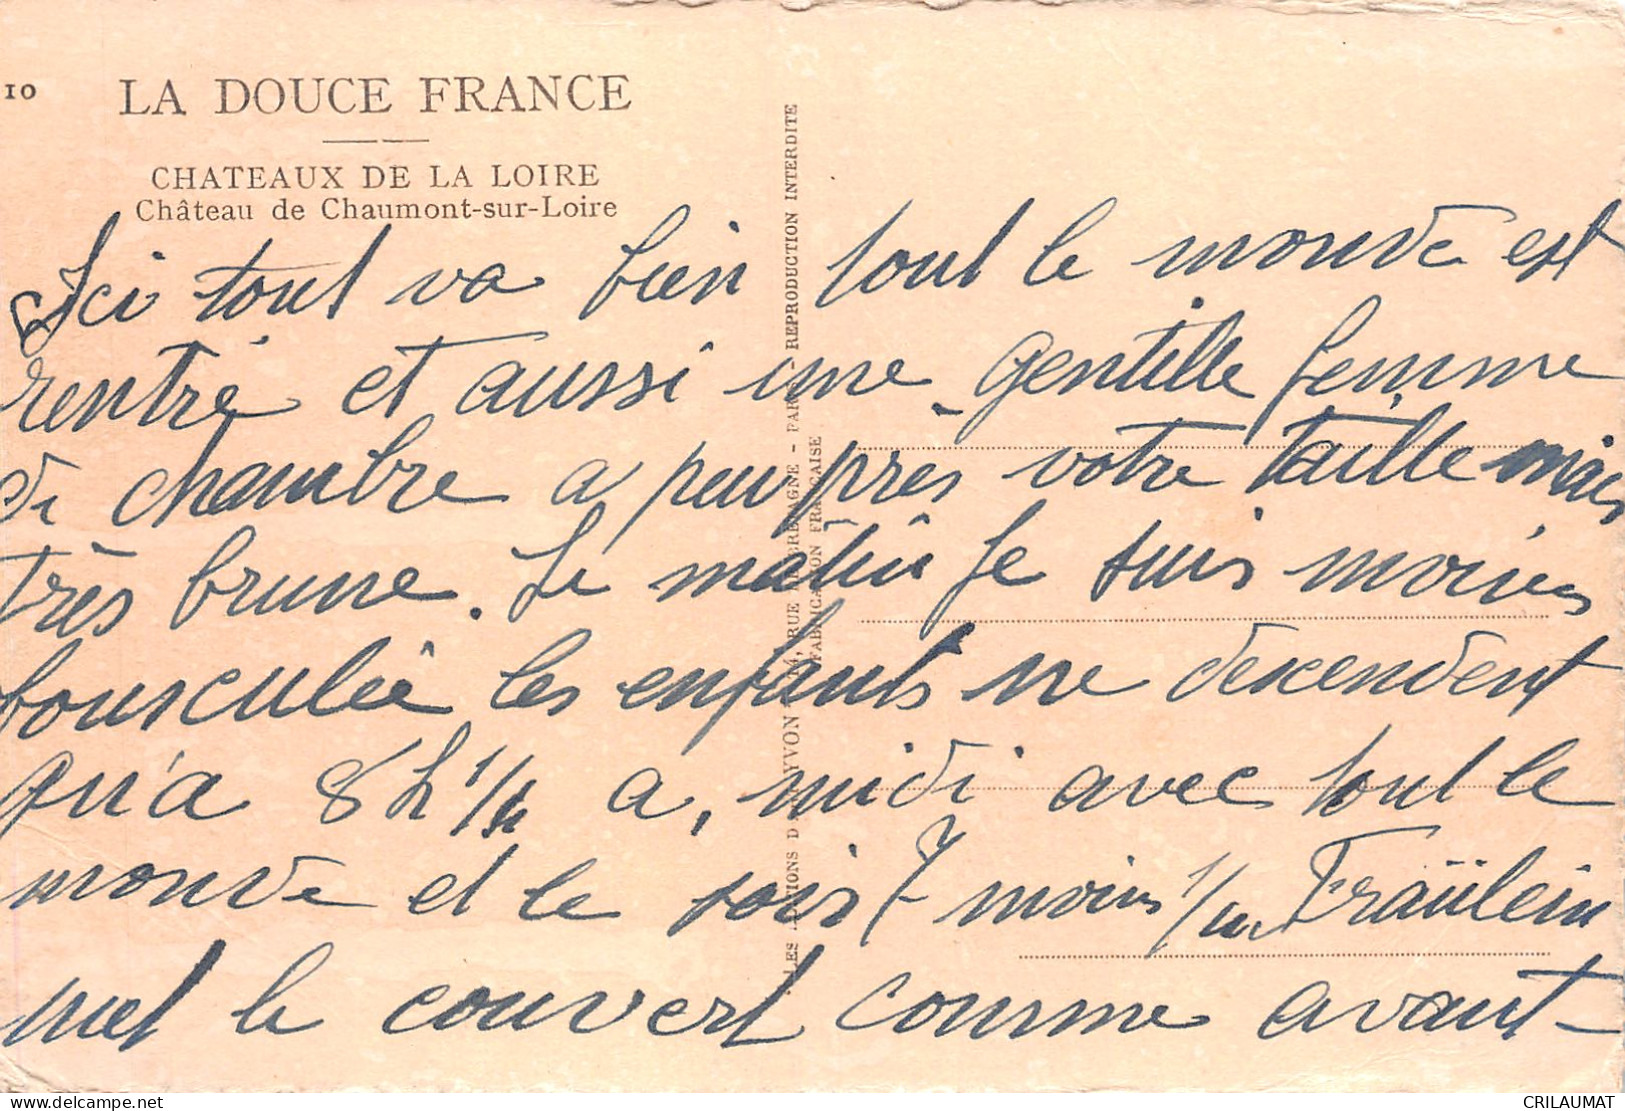 10
LA DOUCE FRANCE
CHATEAUX DE LA LOIRE
Château de Chaumont-sur-Loire
Ici tout va bien tout le monde est
rentré et aussi une gentille femme
de chambre a peu pres votre taille mais
très brune. Le matin je suis moins
bousculée les enfants ne descendent
qu'a 8h 1/4 a, midi avec tout le
monde et le soir 7 moins 1/4. Fraülein
met le couvert comme avant
LES EDITIONS D'YVON
RUE
BRETAGNE - PARIS - REPRODUCTION INTERDITE
FABRICATION FRANÇAISE
CRILAUMAT